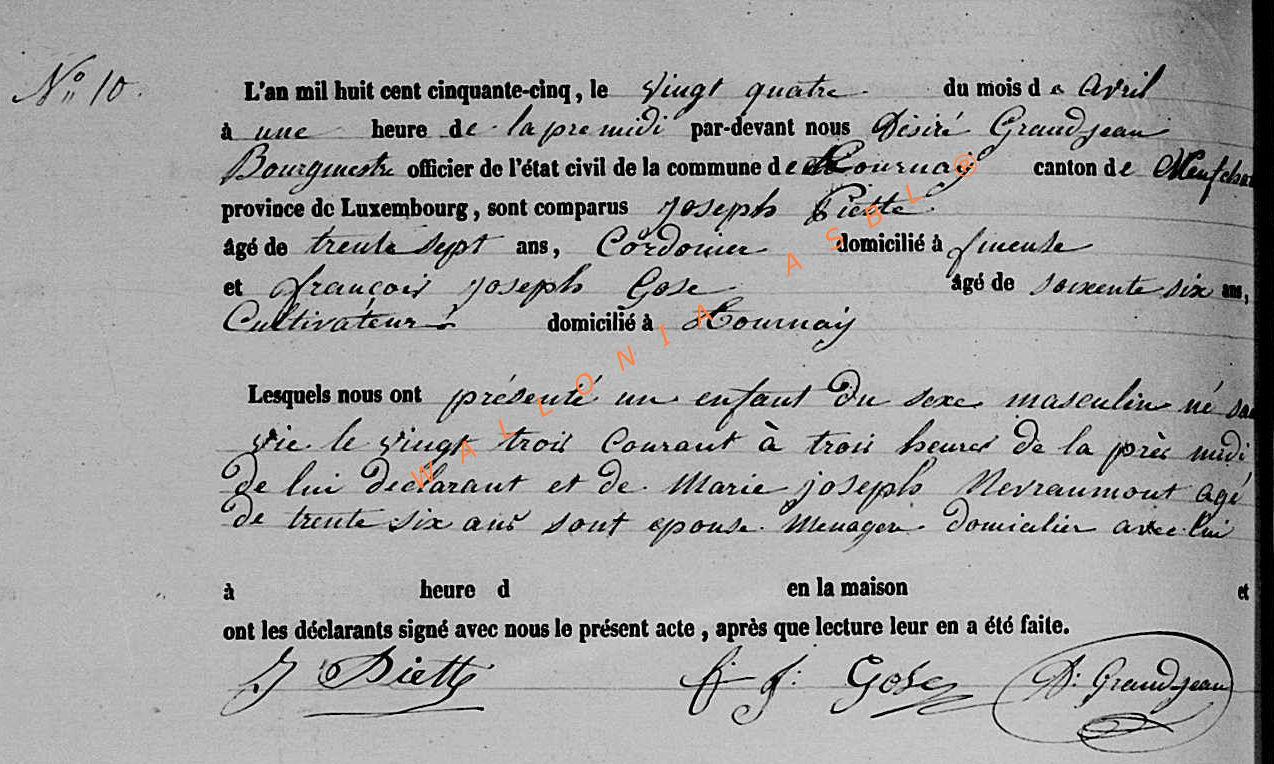 N° 10.
L'an mil huit cent cinquante-cinq, le vingt quatre du mois de avril
à une heure de la pre midi par-devant nous Désiré Grandjean
Bourgmestre officier de l'état civil de la commune de Tournay canton de Neufcha
province de Luxembourg, sont comparus Joseph Piette
âgé de trente sept ans, Cordonier domicilié à fineuse
et françois Joseph Gose âgé de soixente six ans,
Cultivateur domicilié à Tournay
Lesquels nous ont présenté un enfant du sexe masculin né san
vie le vingt trois Courant à trois heures de la près midi
de lui declarant et de Marie joseph Nevraumont agé
de trente six ans sont epouse Menagere domicilier avec lui
à heure d en la maison et
ont les déclarants signé avec nous le présent acte, après que lecture leur en a été faite.
J Piette f. J. Gose D. Grandjean
WALLONIA ASBL ®